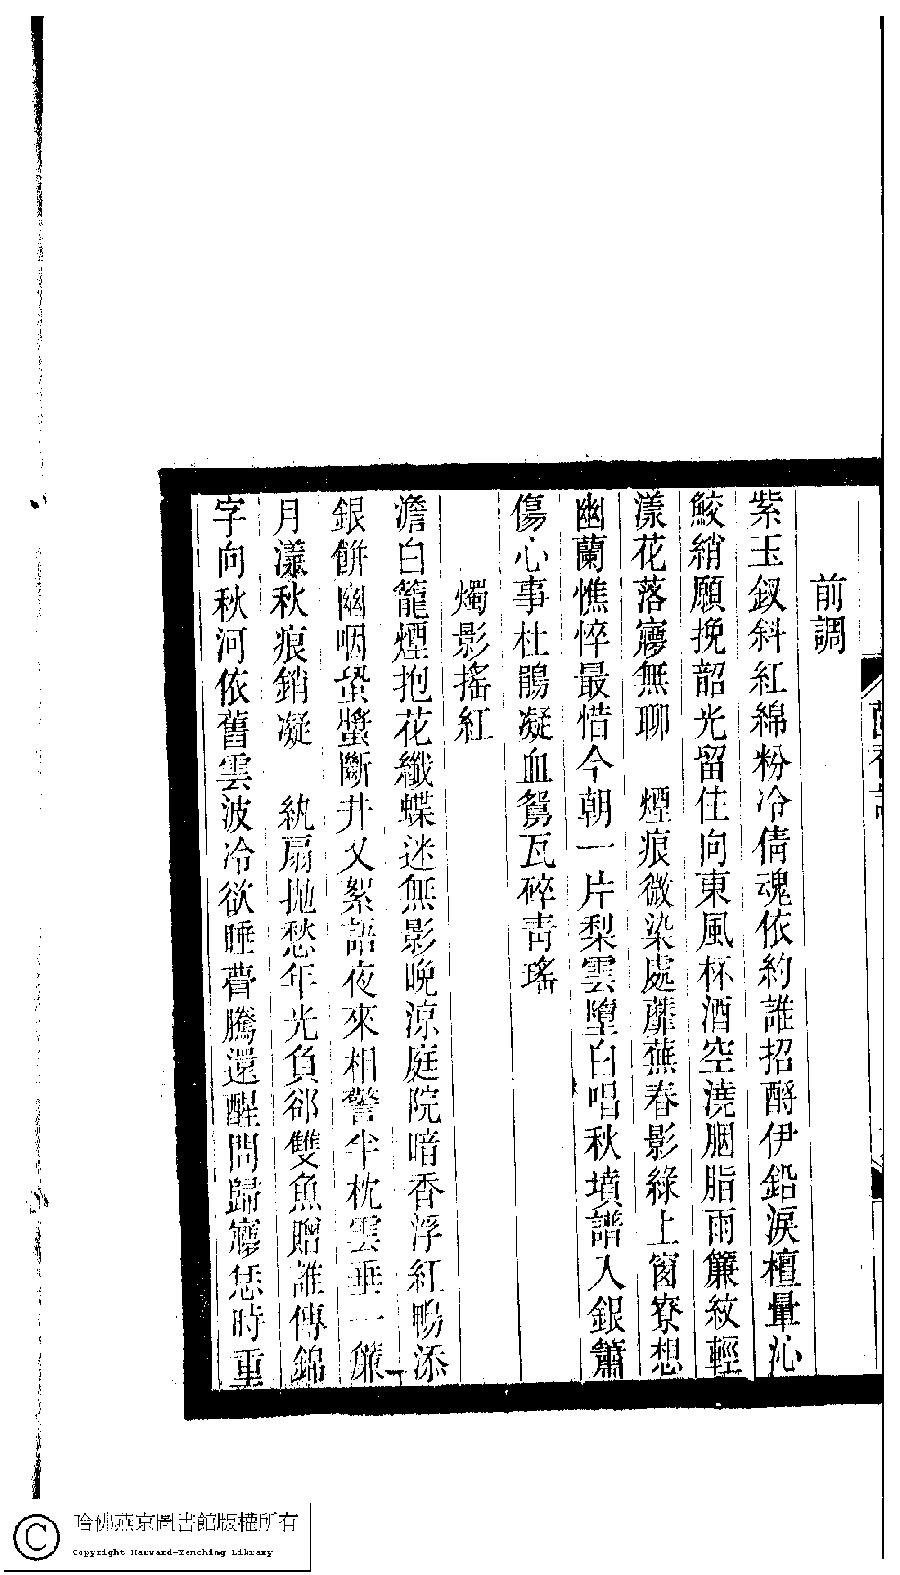 前調
紫玉釵斜紅綿粉冷倩魂依約誰招酹伊鉛淚檀暈沁
鮫綃願挽韶光留住向東風杯酒空澆胭脂雨簾紋輕
漾花落㝱無聊　煙痕微染處蘼蕪春影綠上窗寮想
幽蘭憔悴最惜今朝一片梨雲墮白唱秋墳譜入銀簫
傷心事杜鵑凝血鴛瓦碎靑瑤
燭影搖紅
澹白籠煙抱花纖蝶迷無影晚涼庭院暗香浮紅鴨添
銀餅幽咽蛩螿斷井又絮語夜來相警半枕雲垂一簾
月漾秋痕銷凝　紈扇拋愁年光負郤雙魚贈誰傳錦
字向秋河依舊雲波冷欲睡瞢騰還醒問歸㝱恁時重
哈佛燕京圖書館版權所有
Copyright Harvard-Yenching Library